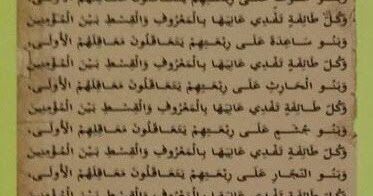 وَكُلُّ طَائِفَةٍ تَفْدِي عَانِيَهَا بِالْمَعْرُوفِ وَالْقِسْطِ بَيْنَ الْمُؤْمِنِينَ
وَبَنُو سَاعِدَةَ عَلَى رِبْعَتِهِمْ يَتَعَاقَلُونَ مَعَاقِلَهُمُ الْأُولَى،
وَكُلُّ طَائِفَةٍ تَفْدِي عَانِيَهَا بِالْمَعْرُوفِ وَالْقِسْطِ بَيْنَ الْمُؤْمِنِينَ
وَبَنُو الْحَارِثِ عَلَى رِبْعَتِهِمْ يَتَعَاقَلُونَ مَعَاقِلَهُمُ الْأُولَى،
وَكُلُّ طَائِفَةٍ تَفْدِي عَانِيَهَا بِالْمَعْرُوفِ وَالْقِسْطِ بَيْنَ الْمُؤْمِنِينَ
وَبَنُو جُشَمٍ عَلَى رِبْعَتِهِمْ يَتَعَاقَلُونَ مَعَاقِلَهُمُ الْأُولَى،
وَكُلُّ طَائِفَةٍ تَفْدِي عَانِيَهَا بِالْمَعْرُوفِ وَالْقِسْطِ بَيْنَ الْمُؤْمِنِينَ
وَبَنُو النَّجَّارِ عَلَى رِبْعَتِهِمْ يَتَعَاقَلُونَ مَعَاقِلَهُمُ الْأُولَى،
وَكُلُّ طَائِفَةٍ تَفْدِي عَانِيَهَا بِالْمَعْرُوفِ وَالْقِسْطِ بَيْنَ الْمُؤْمِنِينَ